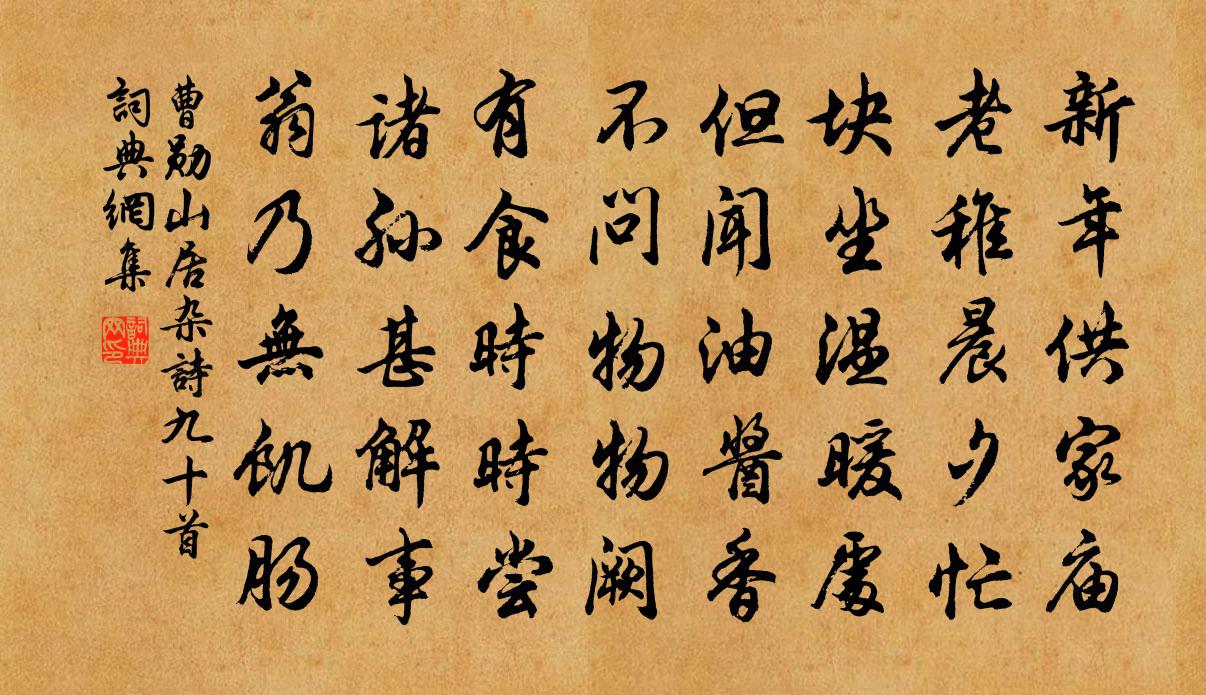 新年供家庙
老稚晨夕忙
块坐温暖處
但闻油醬香
不问物物阙
有食時時尝
诸孙甚解事
翁乃無飢肠
曹勋山居杂詩九十首
詞典網集
詞典网印